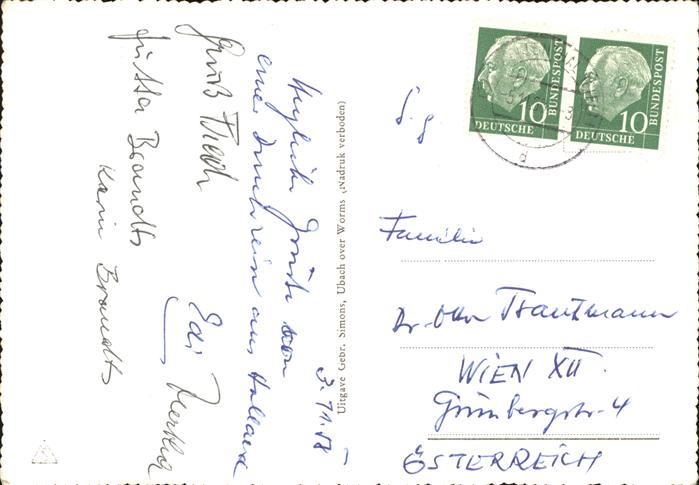 3.11.58
Herzliche Grüße von
einer Durchreise aus Holland
Gruß
Edi
Jutta Brandts
Karin Brandts
Uitgave Gebr. Simons, Ubach over Worms (Nadruk verboden)
10
DEUTSCHE BUNDESPOST
10
DEUTSCHE BUNDESPOST
d
Familie
Dr. Otto Trautmann
WIEN XII.
Grünbergstr. 4
ÖSTERREICH